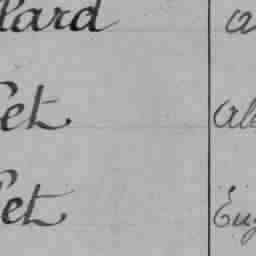 lard a
et Al
et Eug